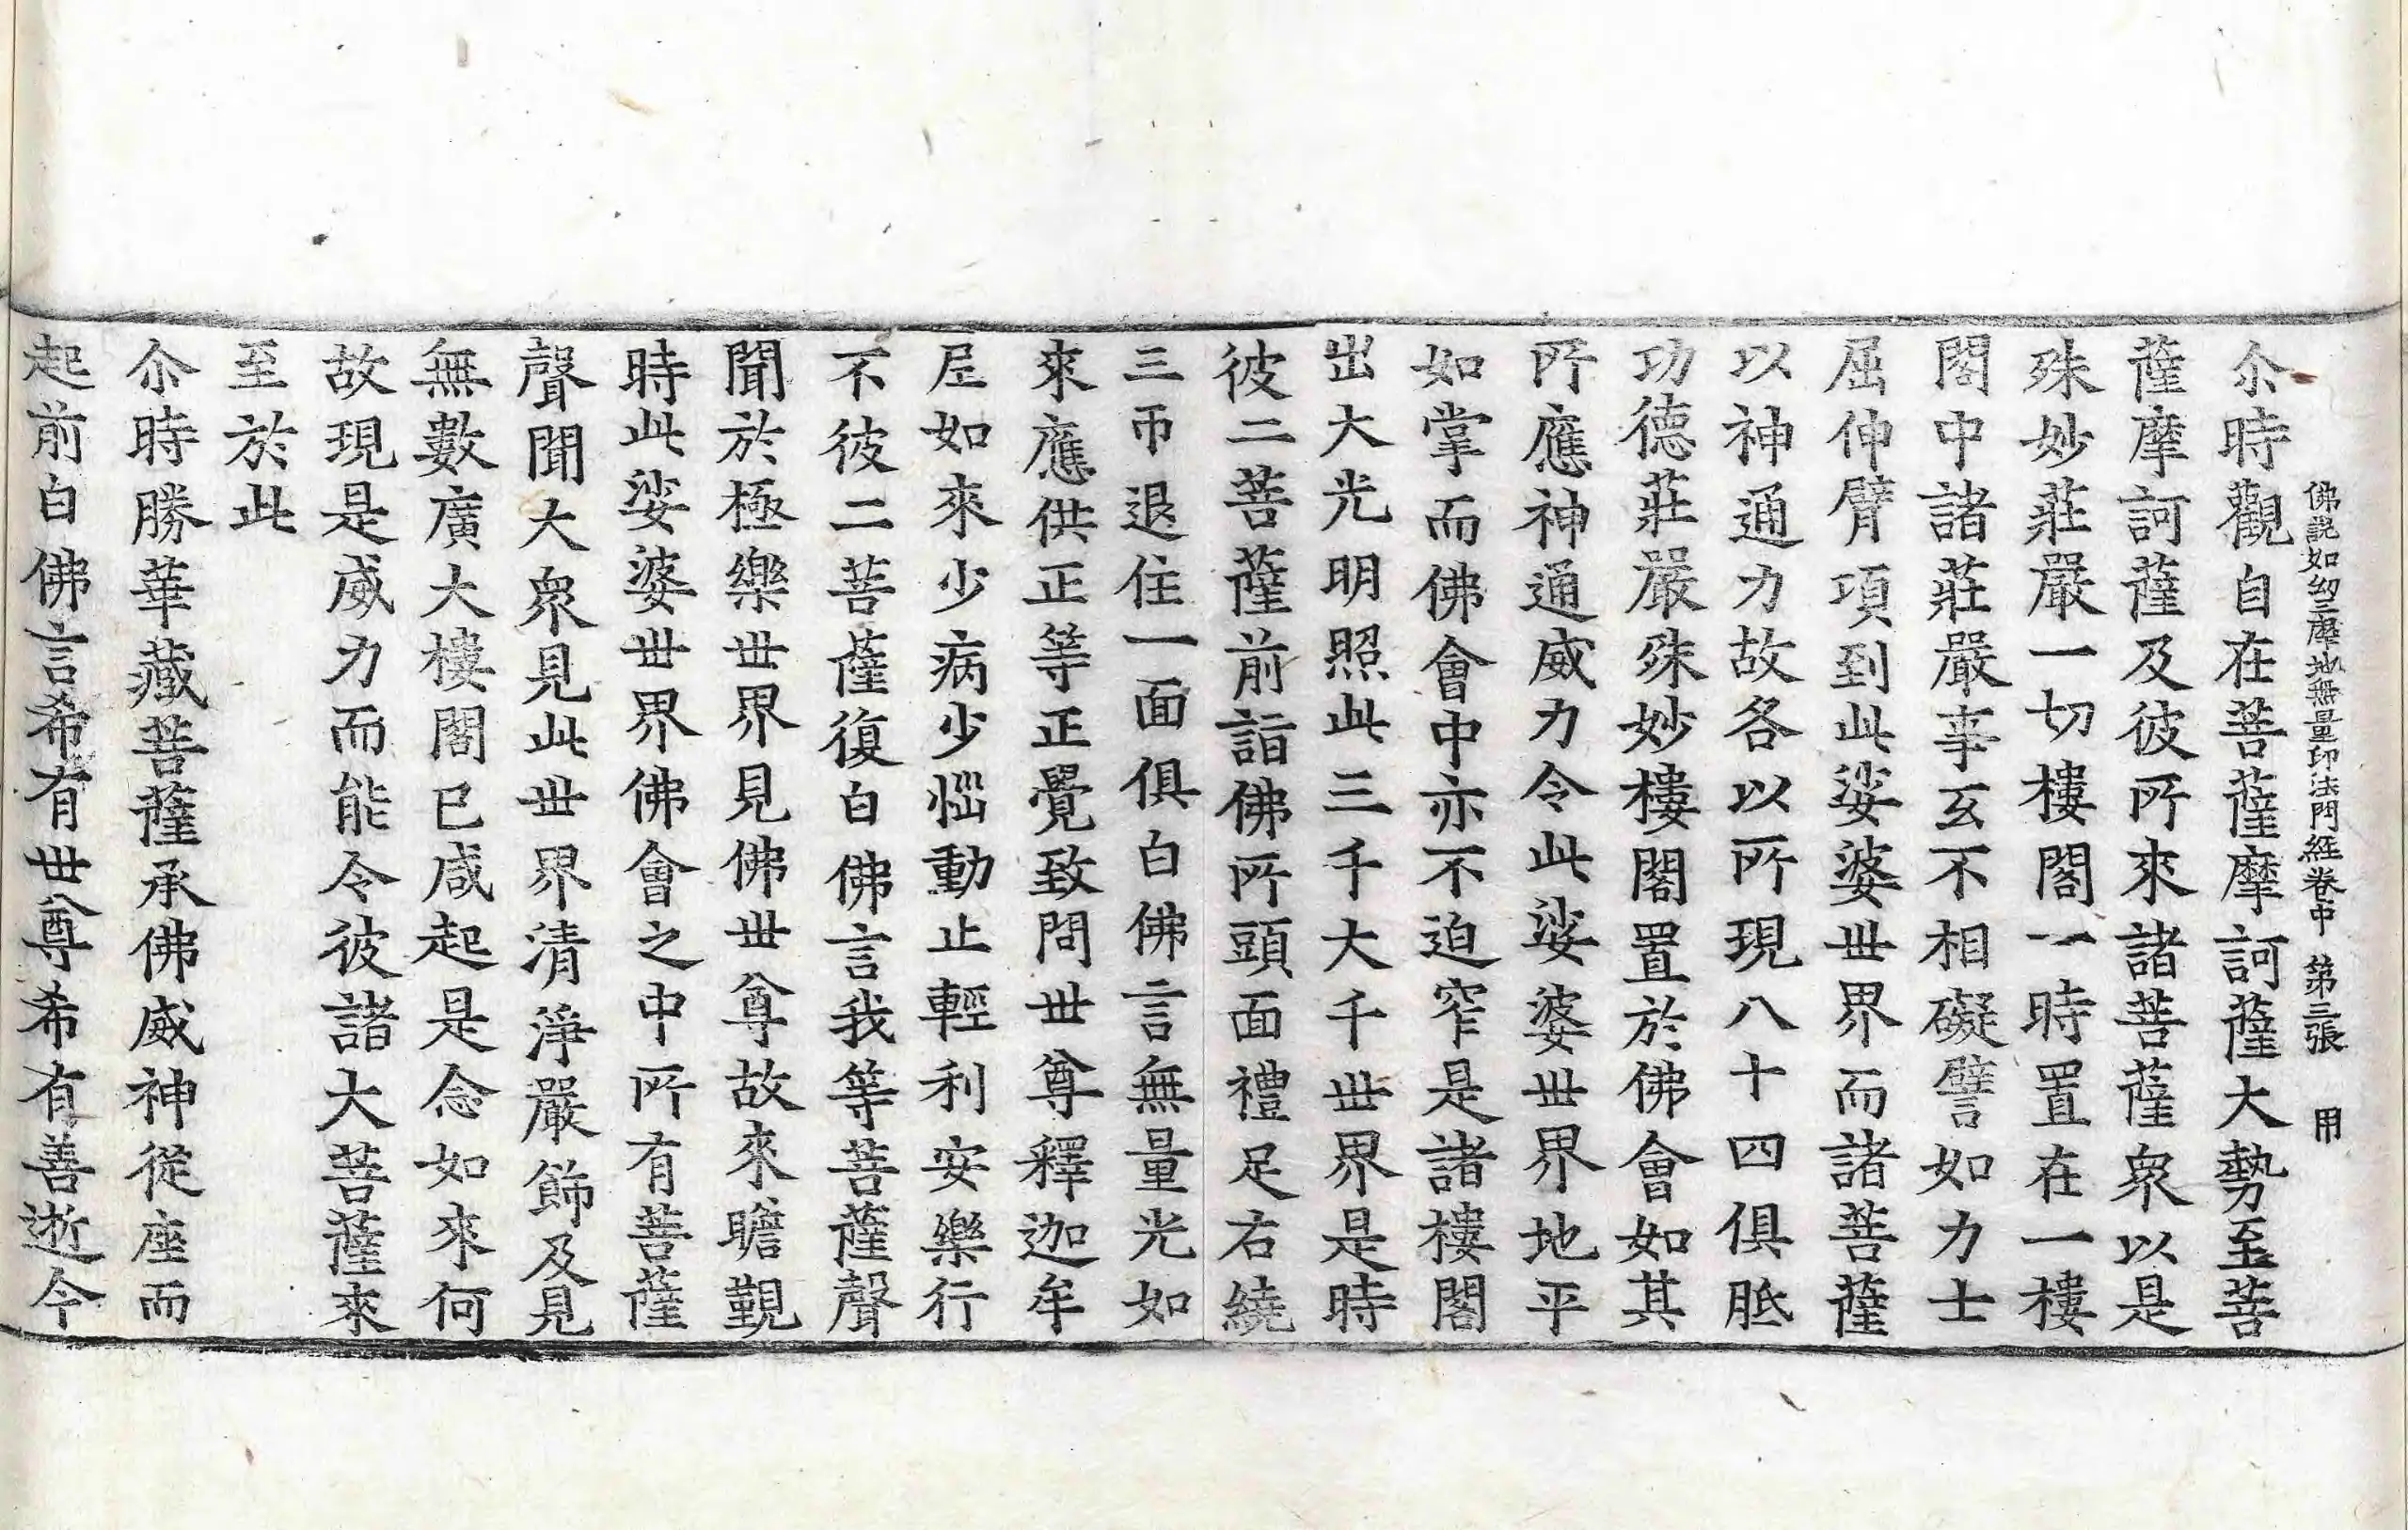 佛說如幻三摩地無量印法門經卷中 第三張 用
尒時觀自在菩薩摩訶薩大勢至菩
薩摩訶薩及彼所來諸菩薩衆以是
殊妙莊嚴一切樓閣一時置在一樓
閣中諸莊嚴事互不相礙譬如力士
屈伸臂項到此娑婆世界而諸菩薩
以神通力故各以所現八十四俱胝
功德莊嚴殊妙樓閣置於佛會如其
所應神通威力令此娑婆世界地平
如掌而佛會中亦不迫窄是諸樓閣
出大光明照此三千大千世界是時
彼二菩薩前詣佛所頭面禮足右繞
三帀退住一面俱白佛言無量光如
來應供正等正覺致問世尊釋迦牟
尼如來少病少惱動止輕利安樂行
不彼二菩薩復白佛言我等菩薩聲
聞於極樂世界見佛世尊故來瞻覲
時此娑婆世界佛會之中所有菩薩
聲聞大衆見此世界清淨嚴飾及見
無數廣大樓閣已咸起是念如來何
故現是威力而能令彼諸大菩薩來
至於此
尒時勝華藏菩薩承佛威神從座而
起前白佛言希有世尊希有善逝今